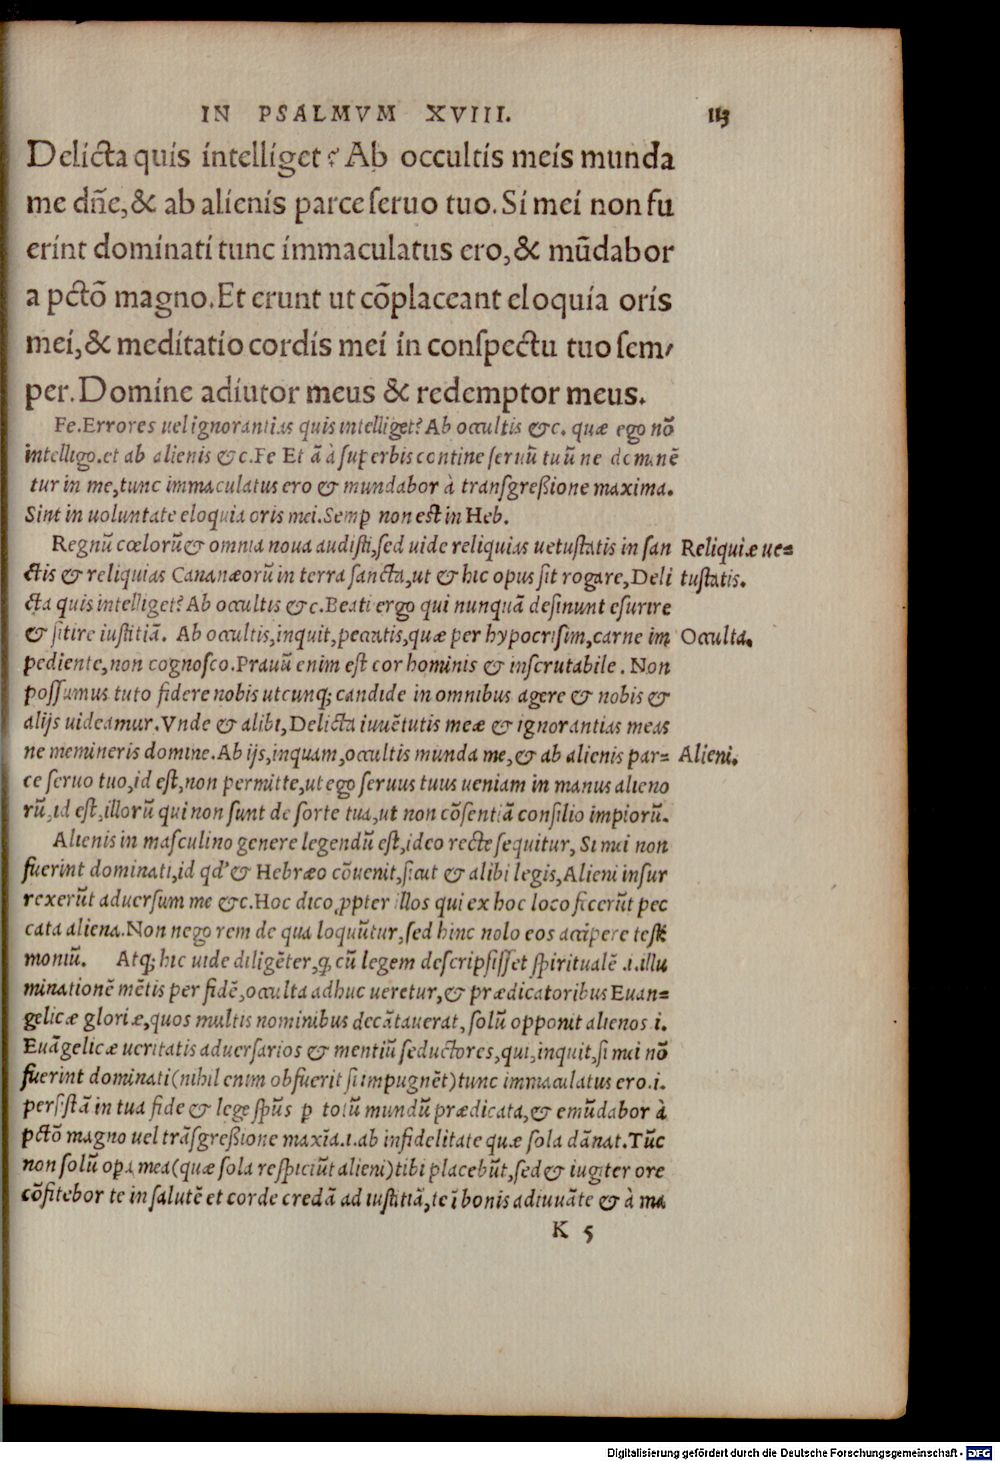 IN PSALMVM XVIII. 113
Delicta quis intelliget? Ab occultis meis munda
me dñe, & ab alienis parce seruo tuo. Si mei non fu
erint dominati tunc immaculatus ero, & mūdabor
a pctō magno. Et erunt ut cōplaceant eloquia oris
mei, & meditatio cordis mei in conspectu tuo sem/
per. Domine adiutor meus & redemptor meus.
Fe. Errores uel ignorantias quis intelliget? Ab occultis &c. quæ ego nō
intelligo. et ab alienis &c. Fe Et ā à superbis contine seruū tuū ne dominē
tur in me, tunc immaculatus ero & mundabor à transgreßione maxima.
Sint in uoluntate eloquia oris mei. Semp non est in Heb.
Regnū cœlorū & omnia noua audisti, sed uide reliquias uetustatis in san
ctis & reliquias Cananæorū in terra sancta, ut & hic opus sit rogare, Deli
cta quis intelliget? Ab occultis &c. Beati ergo qui nunquā desinunt esurire
& sitire iustitiā. Ab occultis, inquit, peccatis, quæ per hypocrisim, carne im
pediente, non cognosco. Prauū enim est cor hominis & inscrutabile. Non
possumus tuto fidere nobis utcunq; candide in omnibus agere & nobis &
alijs uideamur. Vnde & alibi, Delicta iuuētutis meæ & ignorantias meas
ne memineris domine. Ab ijs, inquam, occultis munda me, & ab alienis par=
ce seruo tuo, id est, non permitte, ut ego seruus tuus ueniam in manus alieno
rū, id est, illorū qui non sunt de sorte tua, ut non cōsentiā consilio impiorū.
Alienis in masculino genere legendū est, ideo recte sequitur, Si mei non
fuerint dominati, id qd' & Hebræo cōuenit, sicut & alibi legis, Alieni insur
rexerūt aduersum me &c. Hoc dico ppter illos qui ex hoc loco fecerūt pec
cata aliena. Non nego rem de qua loquūtur, sed hinc nolo eos accipere testi
moniū. Atq; hic uide diligēter, q, cū legem descripsisset spiritualē .i. illu
minationē mētis per fidē, occulta adhuc ueretur, & prædicatoribus Euan=
gelicæ gloriæ, quos multis nominibus decātauerat, solū opponit alienos i.
Euāgelicæ ueritatis aduersarios & mentiū seductores, qui, inquit, si mei nō
fuerint dominati (nihil enim obfuerit si impugnēt) tunc immaculatus ero .i.
persistā in tua fide & lege spūs p totū mundū prædicata, & emūdabor à
pctō magno uel trāsgreßione maxīa .i. ab infidelitate quæ sola dānat. Tūc
non solū opa mea (quæ sola respiciūt alieni) tibi placebūt, sed & iugiter ore
cōfitebor te in salutē et corde credā ad iustitiā, te ī bonis adiuuāte & à ma
K 5
Reliquiæ ue=
tustatis.
Occulta.
Alieni.
Digitalisierung gefördert durch die Deutsche Forschungsgemeinschaft - DFG